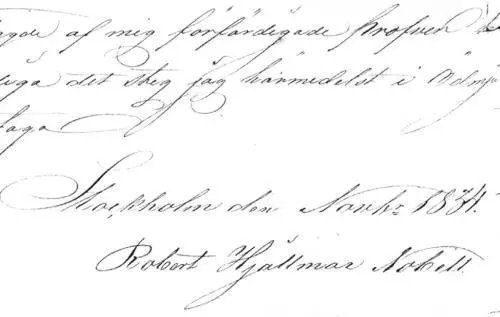 af mig förfärdigade Profven
det steg jag härmedelst i Ödmj
taga
Stockholm den Novbr 1834.
Robert Hjallmar Nobell